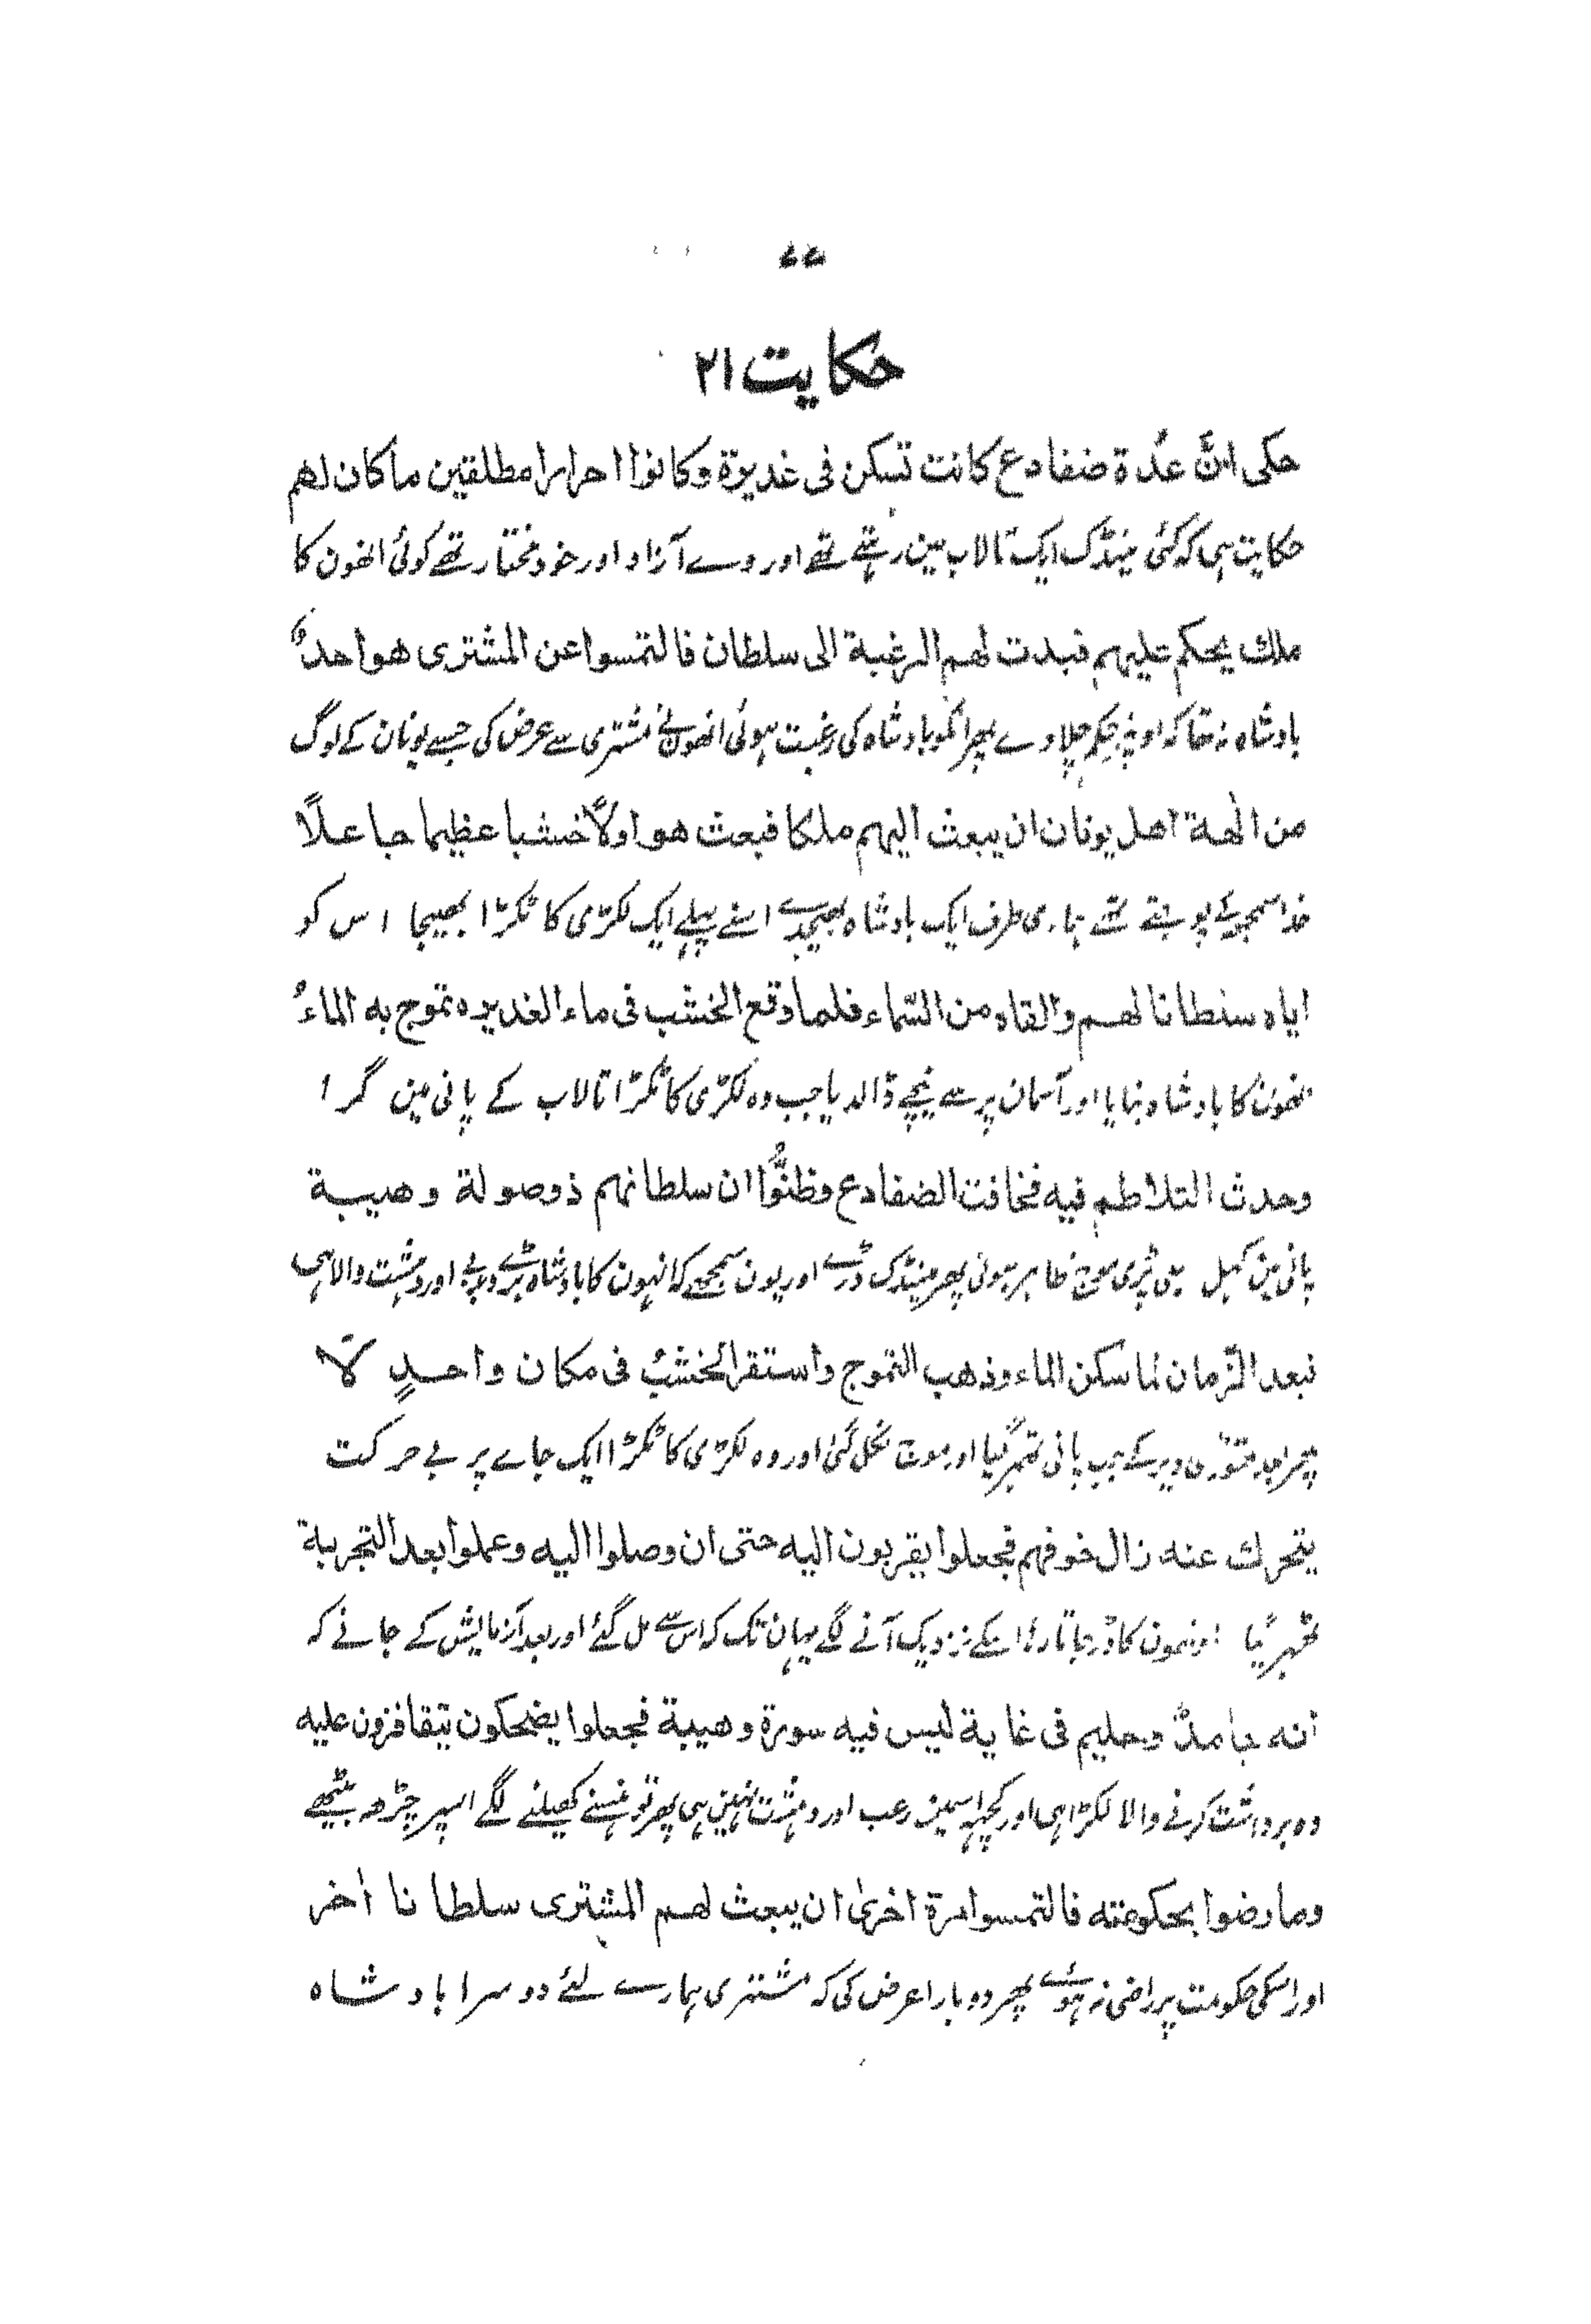 ۷۷
حکایت ۲۱
حکی انّ عدّة ضفادع کانت تسکن فی غدیرة وکانوا احرارا مطلقین ماکان لهم
حکایت ہی کہ کئی مینڈک ایک تالاب مین رہتے تھے اور وے آزاد اور خود مختار تھے کوئی انھون کا
ملك یحکم علیهم فبدت لهم الرغبة الی سلطان فالتمسوا عن المشتری هو احدٌ
بادشاہ نہ تھا کہ اونپہ حکم چلاوے پھر انکو بادشاہ کی رغبت ہوئی انھون نے مشتری سے عرض کی جسے یونان کے لوگ
من الٰهة اهل یونان ان یبعث الیهم ملکا فبعث هو اولاً خشبا عظیما جاعلاً
خدا سمجھ کے پوجتے تھے ہماری طرف ایک بادشاہ بھیجدے اسنے پہلے ایک لکڑی کا ٹکڑا بھیجا اس کو
ایاه سلطانا لهم والقاه من السّماء فلما وقع الخشب فی ماء الغدیره تموج به الماءُ
انھون کا بادشاہ بنایا اور آسمان پر سے نیچے ڈالدیا جب وہ لکڑی کا ٹکڑا تالاب کے پانی مین گرا
وحدث التلاطم فیه فخافت الضفادع وظنّوا ان سلطانهم ذو صولة وهیبة
پانی مین کھبل بلی پڑی موج ظاہر ہوئی پھر مینڈک ڈرے اور یون سمجھے کہ انہون کا بادشاہ بڑے دبدبے اور دہشت والا ہی
فبعد الزّمان لما سکن الماء وذهب التموج واستقر الخشبُ فی مکان واحدٍ لا
پھر بعد تھوڑی دیر کے جب پانی تھمرگیا اور موج نکل گئی اور وہ لکڑی کا ٹکڑا ایک جاے پر بے حرکت
یتحرك عنه زال خوفهم فجعلوا یقربون الیه حتی ان وصلوا الیه وعملوا بعد التجربة
ٹھہرگیا اونھون کا ڈر جاتا رہا اسکے نزدیک آنے لگے یہان تک کہ اس سے مل گئے اور بعد آزمایش کے جانے کہ
انه جامدٌ وحلیم فی غایة لیس فیه سورة وهیبة فجعلوا یضحکون یتقافزون علیه
وہ برداشت کرنے والا لکڑا ہی اور کچھہ اسمین رعب اور دہشت نہین ہی پھر تو ہنسنے کھیلنے لگے اسپر چڑھ بیٹھے
ومارضوا بحکومته فالتمسوا مرة اخریٰ ان یبعث لهم المشتری سلطانا اٰخر
اور اسکی حکومت پر راضی نہ ہوئے پھر دوبارا عرض کی کہ مشتری ہمارے لئے دوسرا بادشاہ